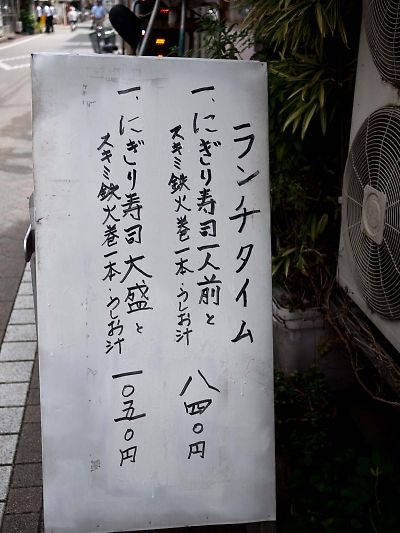 ランチタイム
一、にぎり寿司一人前と
スキミ鉄火巻一本・うしお汁
八四〇円
一、にぎり寿司大盛と
スキミ鉄火巻一本・うしお汁
一〇五〇円